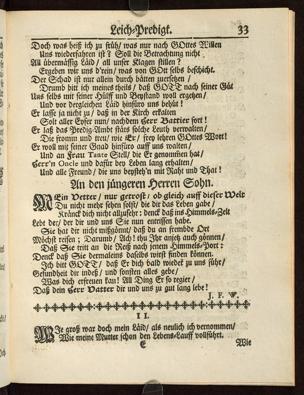 Leich-Predigt. 33
Doch was heiß ich zu früh/ was nur nach GOttes Willen
Uns wiederfahren ist? Soll die Betrachtung nicht
All übermässig Läid/ all unser Klagen stillen?
Ergeben wir uns d'rein/ was von GOtt selbs beschicht.
Der Schad ist nur allein durch bätten zuersetzen/
Drumb bitt ich meines theils/ daß GOTT nach seiner Güt
Uns selbs mit seiner Hülff und Beystand woll ergehen/
Und vor dergleichen Läid hinfüro uns behüt!
Er lasse ja nicht zu/ daß in der Kirch erkalten
Solt aller Eyfer nun/ nachdem Herr Vattier fort!
Er laß das Predig-Ambt stäts solche Leuth verwalten/
Die fromm und treu/ wie Er/ frey lehren GOttes Wort!
Er woll mit seiner Gnad hinfüro auff uns walten/
Und an Frau Tante Stell/ die Er genommen hat/
Herr'n Oncle und dafür bey Leben lang erhalten/
Und alle Freund/ die uns beysteh'n mit Raht und That!
An den jüngeren Herren Sohn.
MEin Vetter/ nur getrost/ ob gleich auff dieser Welt
Du nicht mehr sehen solst/ die dir das Leben gabe/
Kränck dich nicht allzusehr: denck daß ins Himmels-Zelt
Lebe der/ der dir und uns Sie nun entrissen habe.
Sie hat dir nicht mißgönnt/ daß du an frembde Ort
Möchst reisen; Darumb/ Ach! ihr Ihr anjetz auch gönnen/
Daß Sie tritt an die Reiß nach jenem Himmels-Port:
Denck daß Sie dermaleins daselbs wirst finden können.
Ich bitt GOTT/ daß Er dich bald wieder zu uns führ/
Gesundheit dir indeß/ und sonsten alles gebe/
Was dich erfreuen kan! All Ding Er so regier/
Daß dein Herr Vatter dir und uns zu gut lang lebe!
J. F. W.
II.
WJe groß war doch mein Läid/ als neulich ich vernommen/
Wie meine Mutter schon den Lebens-Lauff vollführt.
E Wie